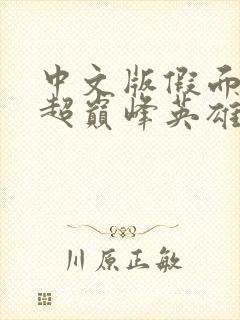 中文版假而
超巅峰英雄
川原正敏